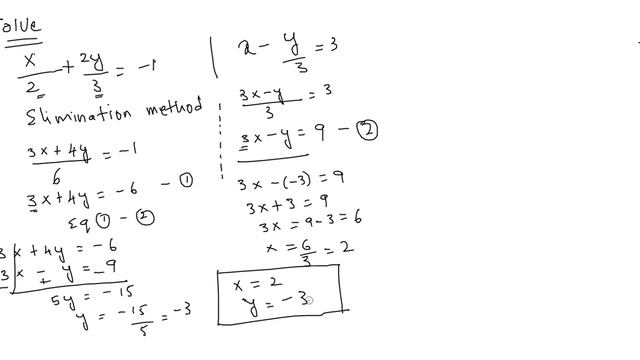 Solve
x/2 + 2y/3 = -1
Elimination method
3x + 4y/6 = -1
3x + 4y = -6 - ①
Eq ① - ②
3x + 4y = -6
3x - y = 9
+ -
5y = -15
y = -15/5 = -3
x - y/3 = 3
3x - y/3 = 3
3x - y = 9 - ②
3x - (-3) = 9
3x + 3 = 9
3x = 9 - 3 = 6
x = 6/3 = 2
x = 2
y = -3